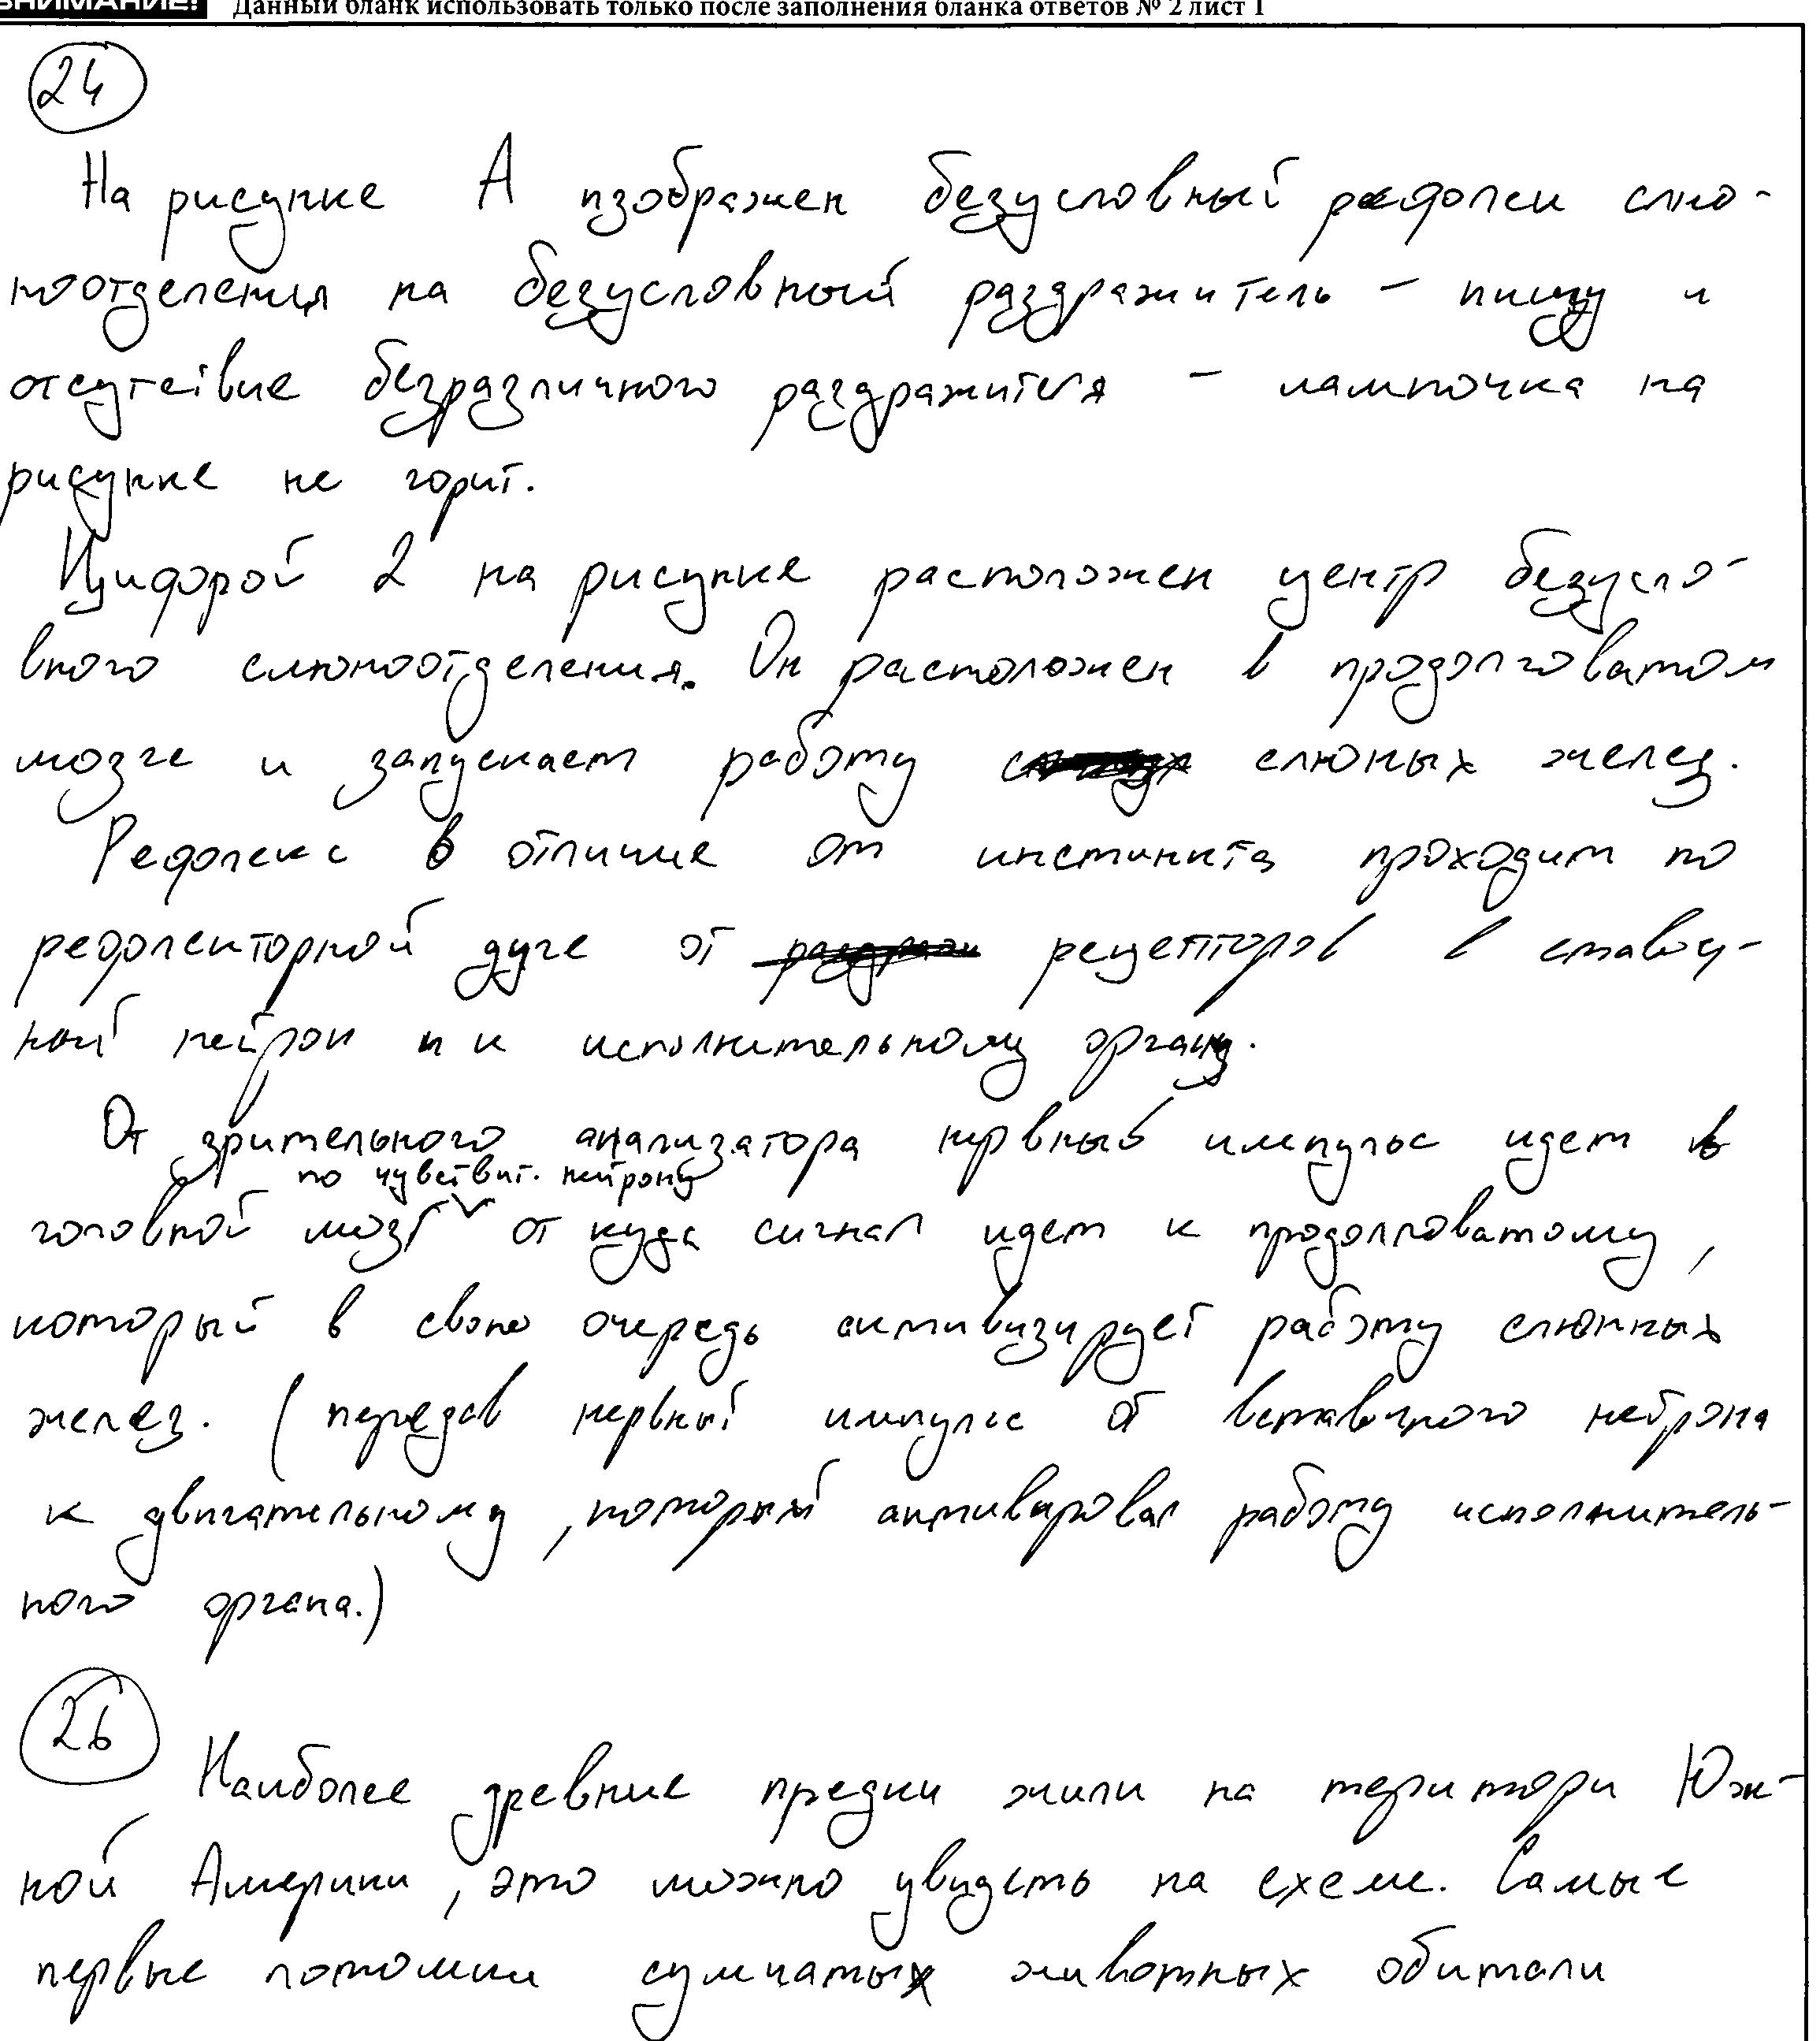 ВНИМАНИЕ! Данный бланк использовать только после заполнения бланка ответов № 2 лист 1
24
На рисунке А изображен безусловный рефлекс слю-
ноотделения на безусловный раздражитель - пищу и
отсутствие безразличного раздражителя - лампочка на
рисунке не горит.
Цифрой 2 на рисунке расположен центр безусло-
вного слюноотделения. Он расположен в продолговатом
мозге и запускает работу слюных желез.
Рефлекс в отличие от инстинкта проходит по
рефлекторной дуге от рецепторов в ставоч-
ной нейрон и к исполнительному органу.
От зрительного анализатора нервный импульс идет в
по чувствит. нейрону
головной мозг от куда сигнал идет к продолговатому,
который в свою очередь активизирует работу слюнных
желез. (передав нервный импульс от вставочного нейрона
к двигательному, который активировал работу исполнитель-
ного органа.)
26
Наиболее древние предки жили на територи Юж-
ной Америки, это можно увидеть на схеме. Самые
первые потомки сумчатых животных обитали